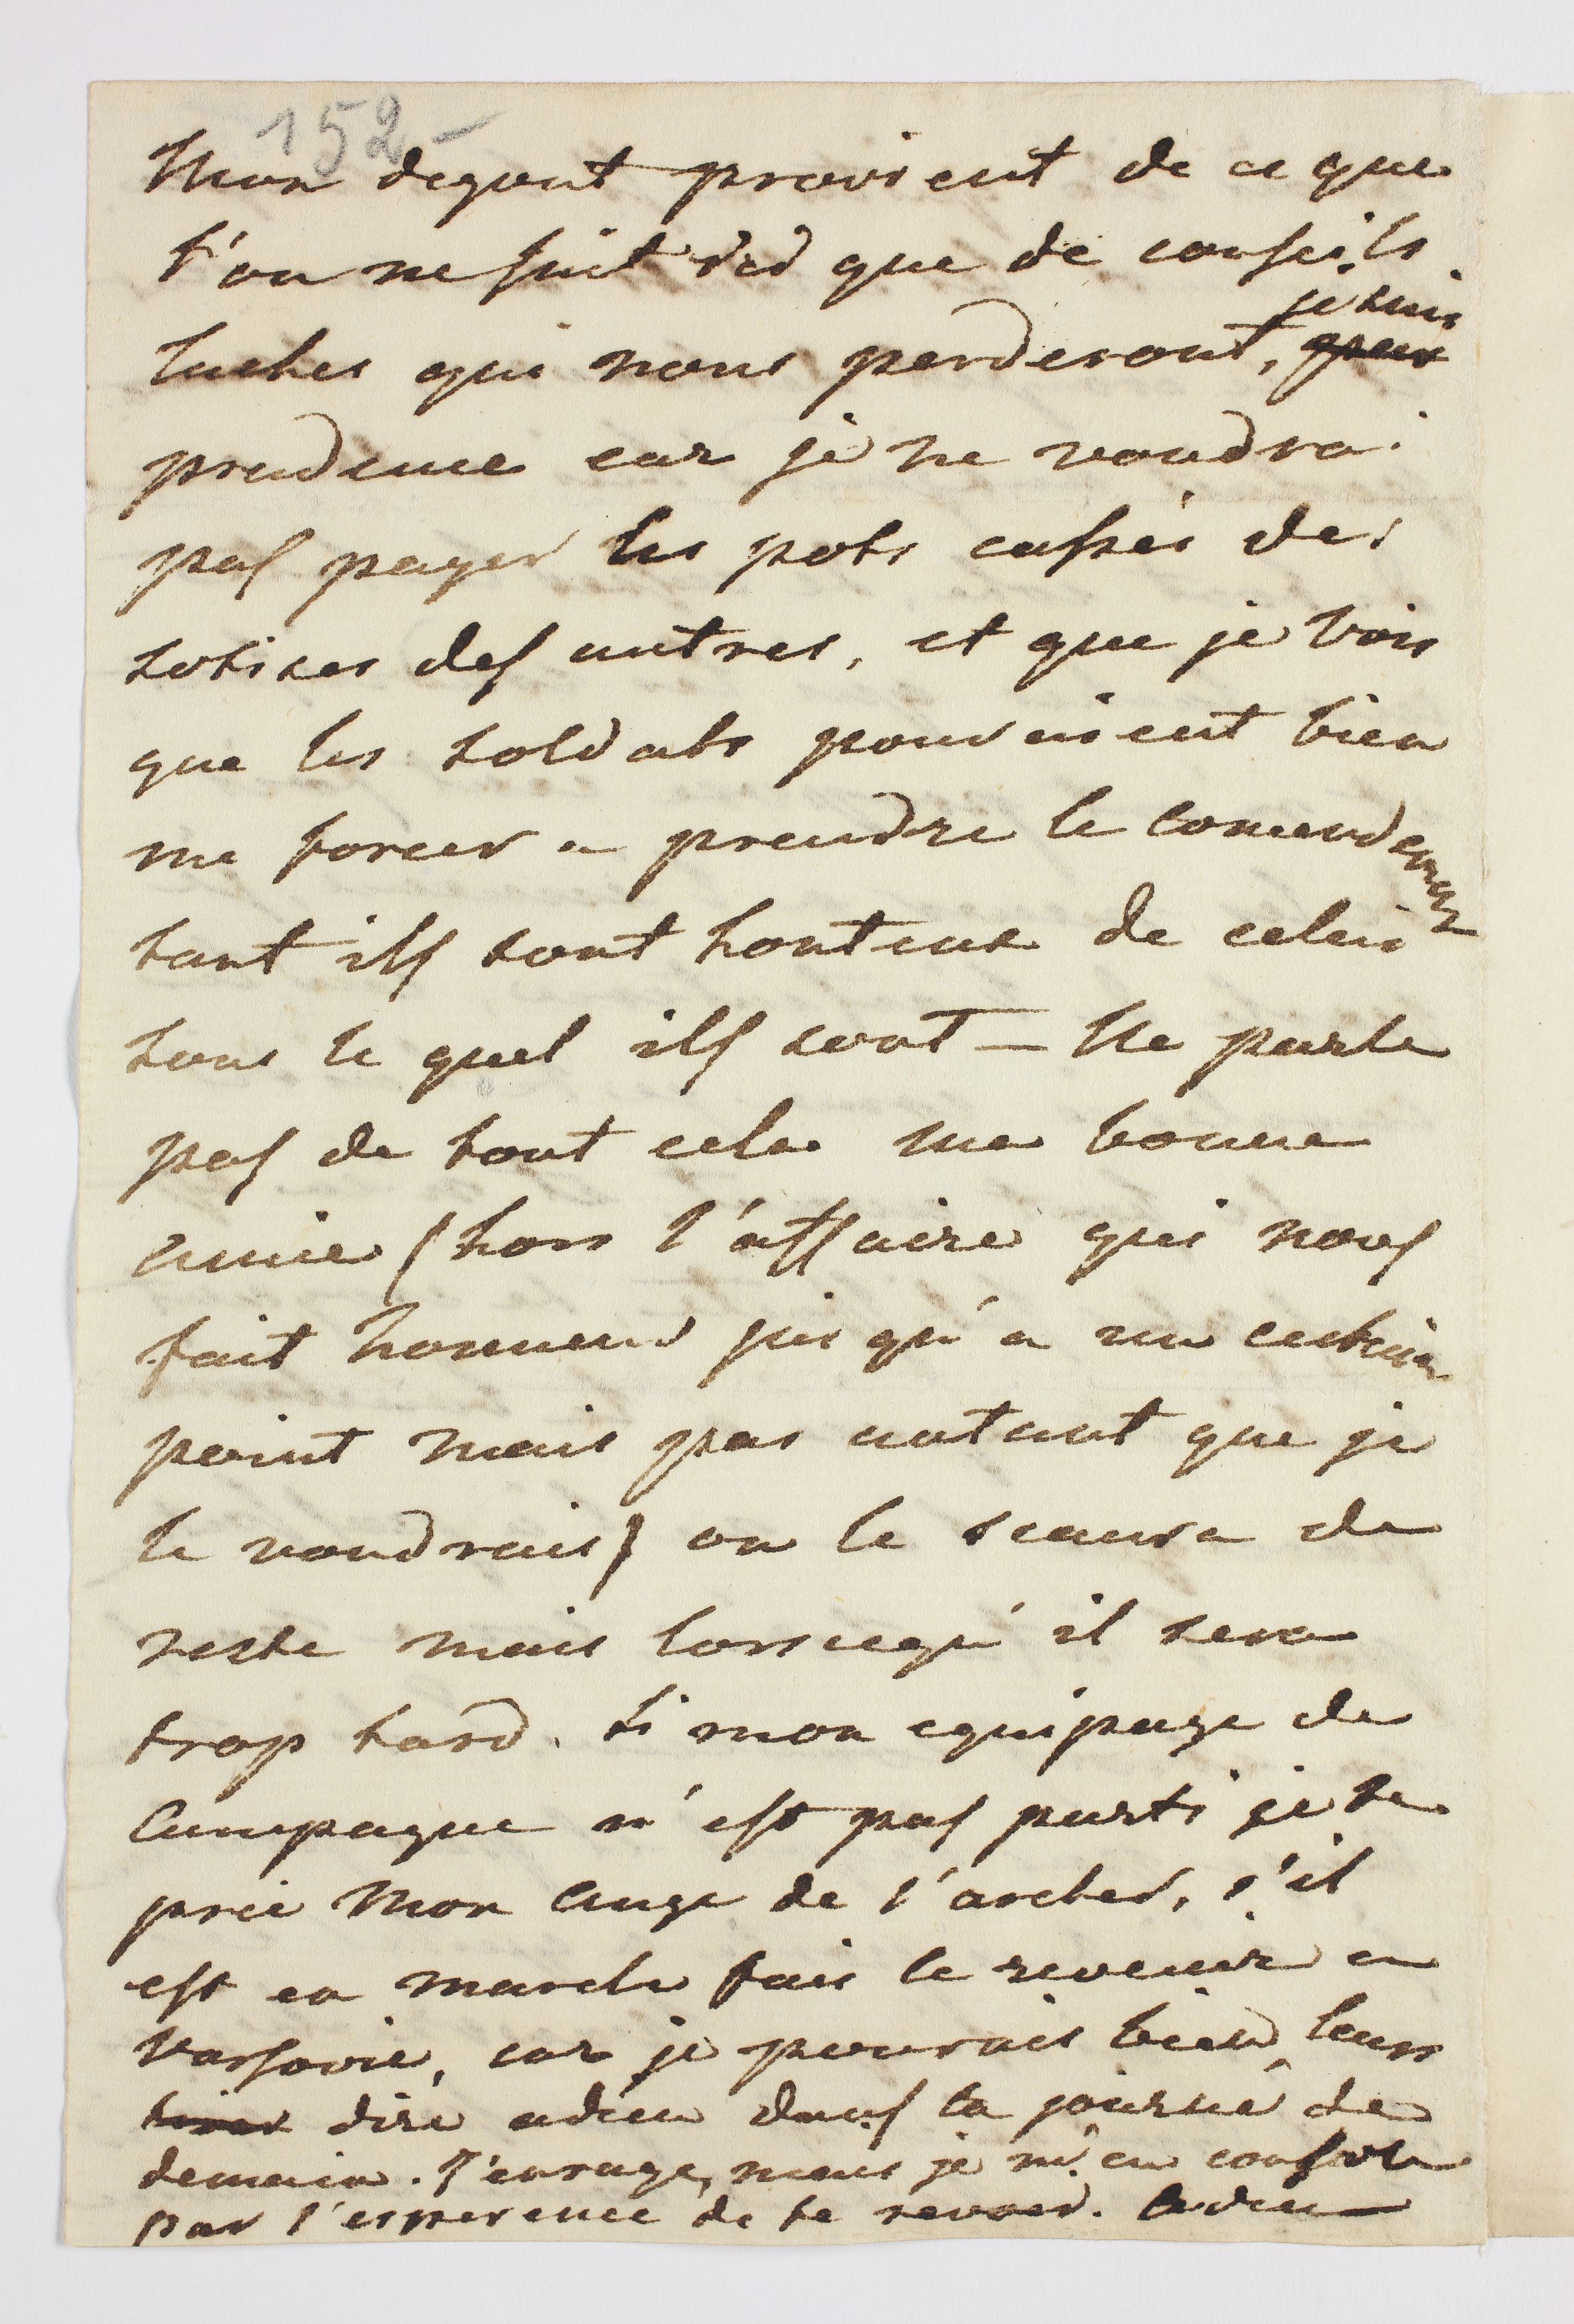 152 -
Mon degout provient de ce que
l'on ne suit ici que de conseils
laches qui nous perderont, je suis
prudence car je ne voudrai
pas payer les pots cassés des
sotises des autres, et que je vois
que les soldats pouraient bien
me forcer a prendre le comendement
tant ils sont honteux de celui
sous le quel ils sont — Ne parle
pas de tout cela ma bonne
amie (hors l'affaire qui nous
fait honneur jus qu'a un certain
point mais pas autant que je
le voudrais) on le scaura de
reste mais lorsequ'il sera
trop tard. Si mon equipage de
Campagne n'est pas parti je te
prie Mon Ange de l'areter, s'il
est en marche fais le revenir en
Varsovie, car je pourais bien leurs
dire adieu dans la journé de
demain. J'enrage, mais je m'en console
par l'esperence de te revoir. Adieu